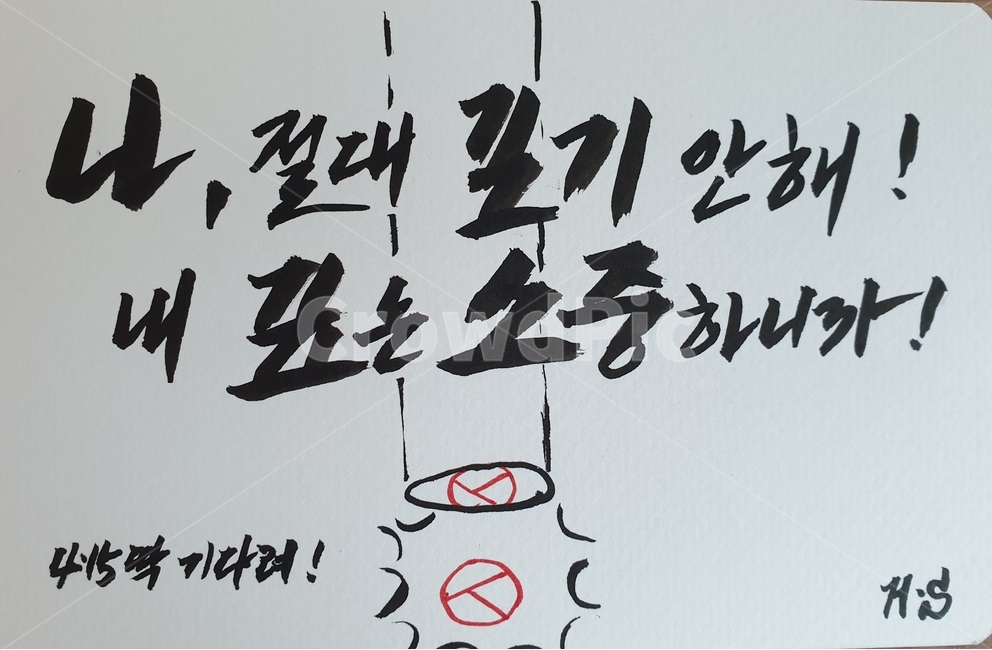 나, 절대 포기 안해!
내 표는 소중하니까!
4·15 딱 기다려!
H·S
CrowdPic